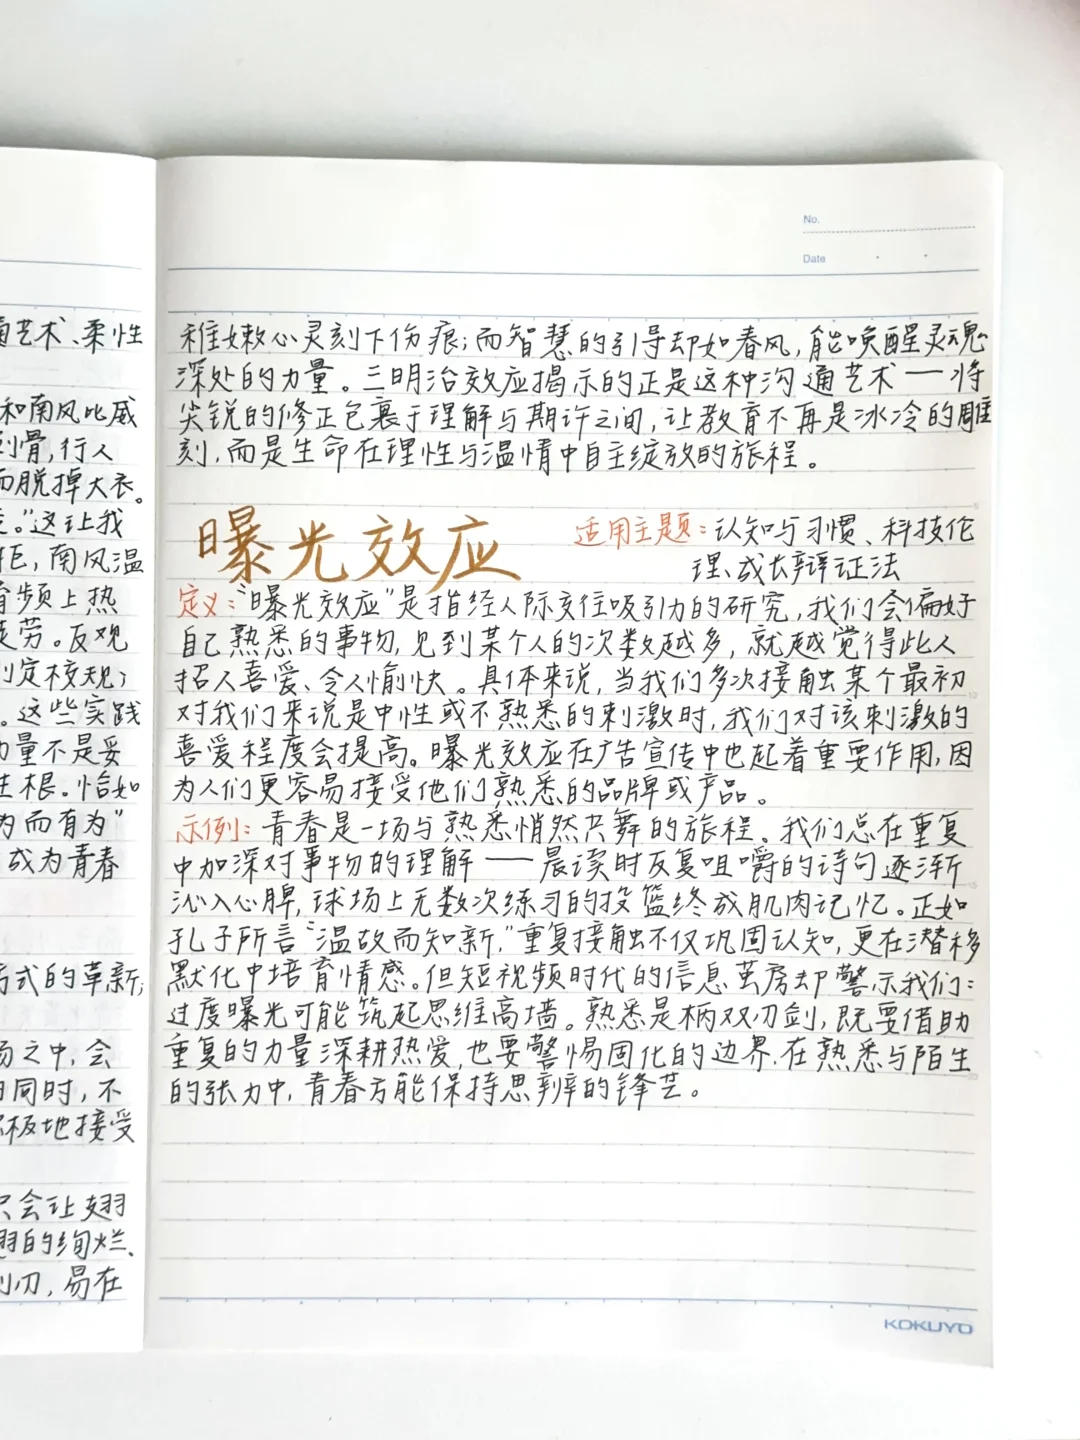 艺术、柔性
和南风比威
刺骨,行人
而脱掉大衣。
。”这让我
,南风温
频上热
劳。反观
制定校规;
。这些实践
力量不是妥
生根。恰如
为而有为”
成为青春
方式的革新;
场之中,会
同时,不
积极地接受
只会让翅
翅的绚烂、
利刃,易在
No.
Date
稚嫩心灵刻下伤痕;而智慧的引导却如春风,能唤醒灵魂
深处的力量。三明治效应揭示的正是这种沟通艺术——将
尖锐的修正包裹于理解与期许之间,让教育不再是冰冷的雕
刻,而是生命在理性与温情中自主绽放的旅程。
曝光效应
适用主题:认知与习惯、科技伦
理、成长辩证法
定义:“曝光效应”是指经人际交往吸引力的研究,我们会偏好
自己熟悉的事物,见到某个人的次数越多,就越觉得此人
招人喜爱、令人愉快。具体来说,当我们多次接触某个最初
对我们来说是中性或不熟悉的刺激时,我们对该刺激的
喜爱程度会提高。曝光效应在广告宣传中也起着重要作用,因
为人们更容易接受他们熟悉的品牌或产品。
示例:青春是一场与熟悉悄然共舞的旅程。我们总在重复
中加深对事物的理解——晨读时反复咀嚼的诗句逐渐
沁入心脾,球场上无数次练习的投篮终成肌肉记忆。正如
孔子所言“温故而知新,”重复接触不仅巩固认知,更在潜移
默化中培育情感。但短视频时代的信息茧房却警示我们:
过度曝光可能筑起思维高墙。熟悉是柄双刃剑,既要借助
重复的力量深耕热爱,也要警惕固化的边界.在熟悉与陌生
的张力中,青春方能保持思辨的锋芒。
KOKUYO